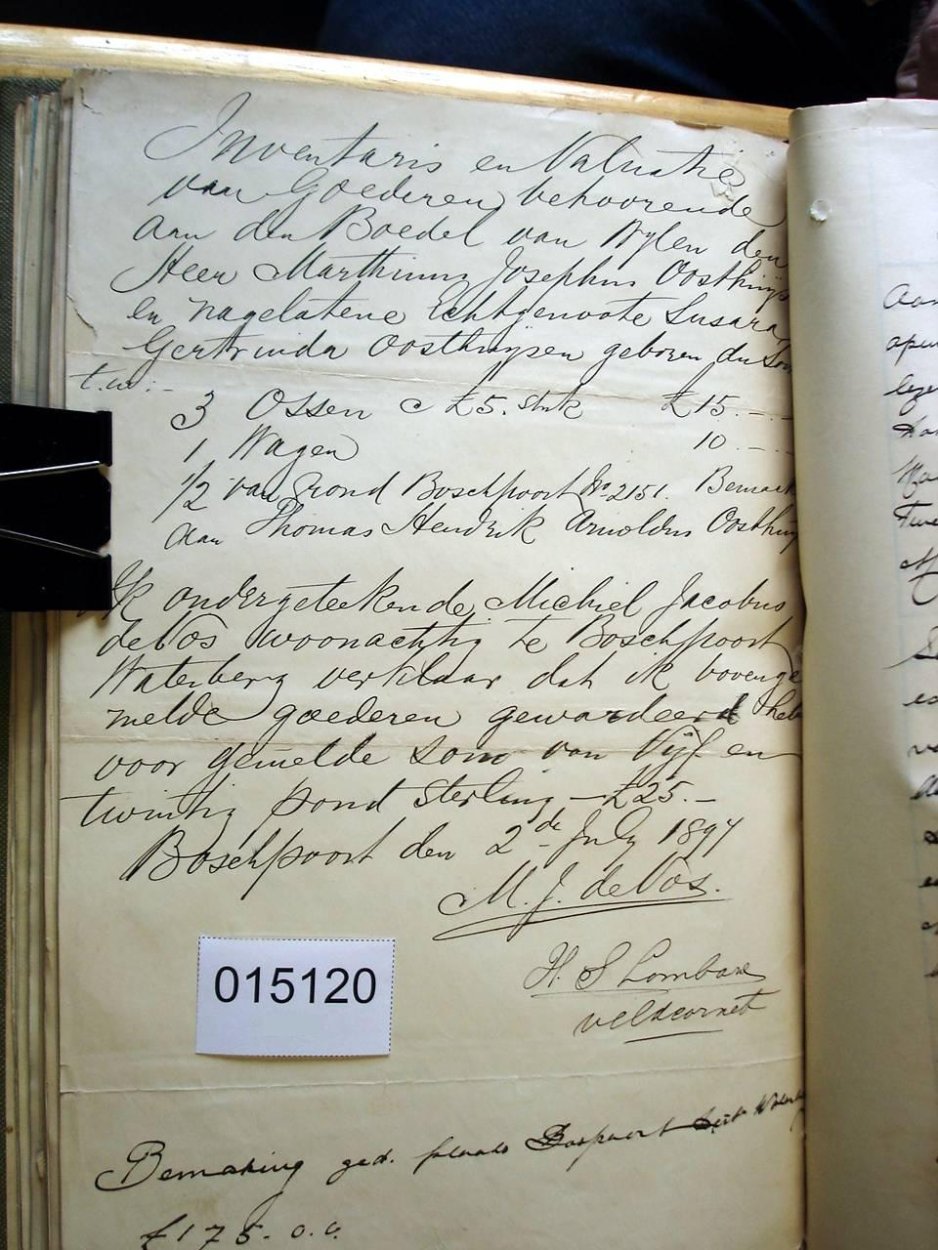 Inventaris en Valuatie
van Goederen behoorende
aan den Boedel van Wylen den
Heer Marthinus Josephus Oosthuys
en nagelatene Echtgenoote Susara
Gertruida Oosthuysen geboren du
t.w:-
3 Ossen @ £5. stuk £15.--
1 Wagen 10 --
1/2 van grond Boschpoort No 2151. Bemaak
aan Thomas Hendrik Arnoldus Oosthuy
Ik ondergeteekende Michiel Jacobus
de Vos woonachtig te Boschpoort
Waterberg verklaar dat ik bovenge
melde goederen gewardeerd heb
voor gemelde som van Vijf en
twintig pond sterling - £25.-
Boschpoort den 2de July 1897
M. J. de Vos.
H. S Lombard
veldcornet
015120
Bemaking ged. plaats Bospoort
£175.0.0.
Aan